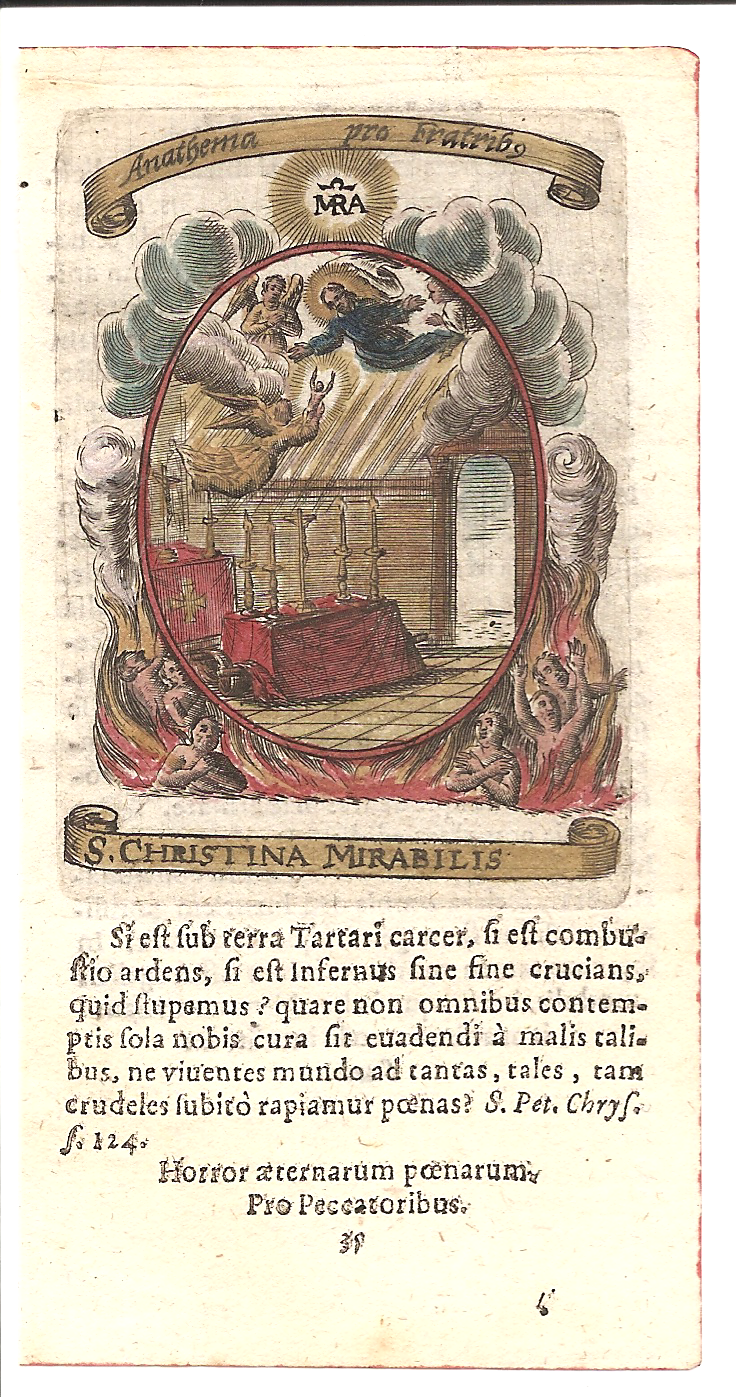 Anathema pro fratribꝰ
MRA
S. CHRISTINA MIRABILIS
Si eſt ſub terra Tartari carcer, ſi eſt combu-
ſtio ardens, ſi eſt Infernus ſine fine crucians,
quid ſtupemus ? quare non omnibus contem-
ptis ſola nobis cura ſit euadendi à malis tali-
bus, ne viuentes mundo ad tantas, tales, tam
crudeles ſubitò rapiamur pœnas? S. Pet. Chryſ.
ſ. 124.
Horror æternarum pœnarum,
Pro Peccatoribus.